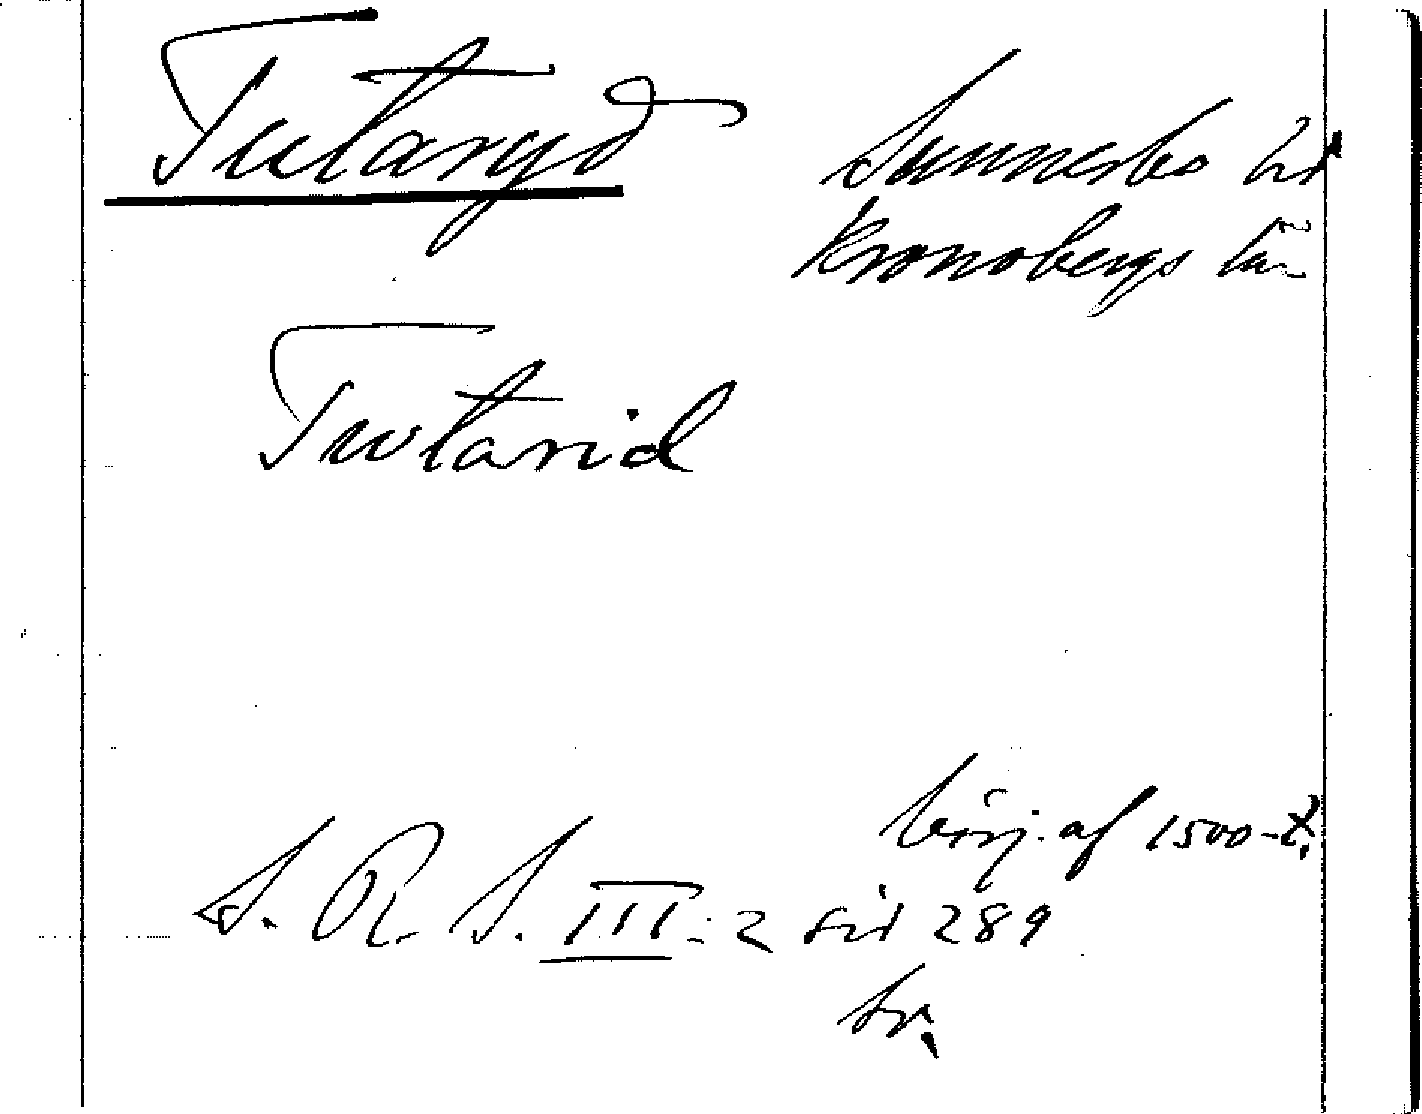 Tutaryd
Sunnerbo hd
Kronobergs län
Twtarid
börj. af 1500-t.
S. R. S. III: 2 sid 289
tr.